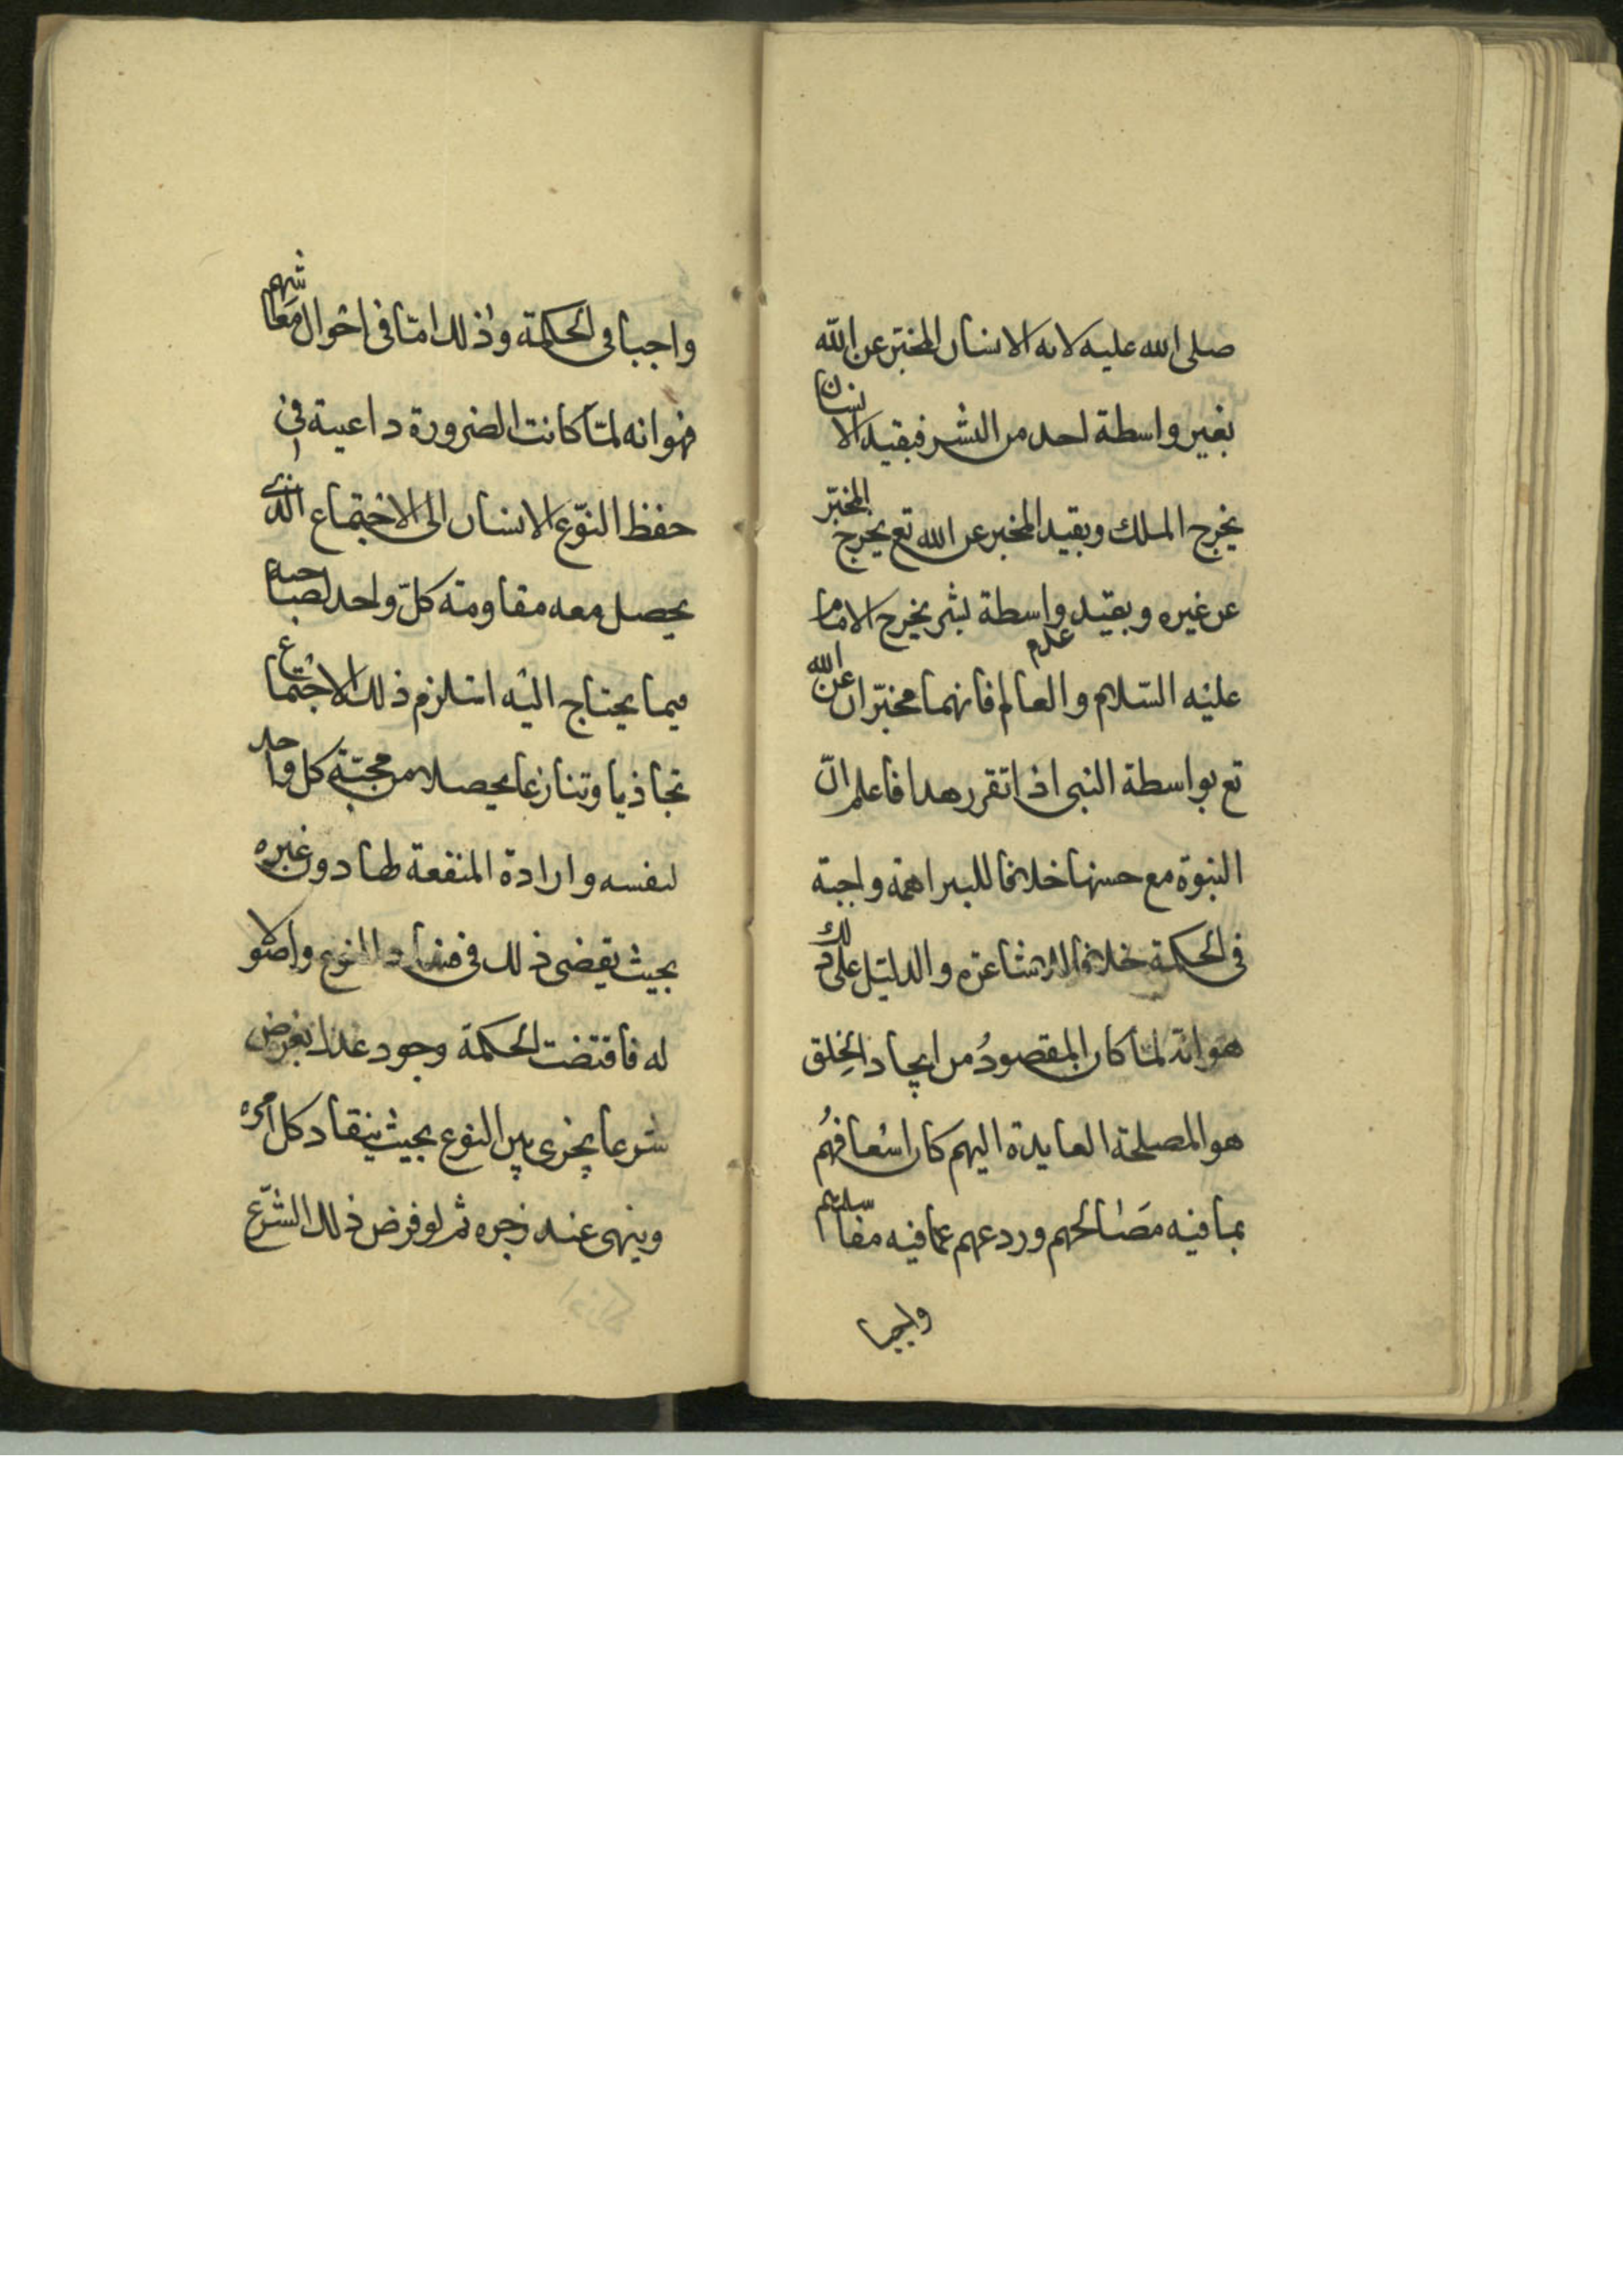 صلى الله عليه لانه الانسان المخبّر عن الله
بغير واسطة احد من البشر فبقيد الانسان
يخرج الملك وبقيد المخبر عن الله تع يخرج المخبّر
عن غيره وبقيد عدم واسطة بشر يخرج الامام
عليه السّلام والعالم فانهما مخبّران عن الله
تع بواسطة النبى اذا تقرر هذا فاعلم انّ
النبوة مع حسنها خلافا للبراهمة واجبة
فى الحكمة خلافا للاشاعره والدليل على ذلك
هو انه لمّا كان المقصودُ من ايجاد الخلق
هو المصلحة العايدة اليهم كان اسعافهُم
بما فيه مصَالحهم وردعهم عما فيه مفاسدهم
واجبا
واجبا فى الحكمة وذلك امّا فى احوال مَعَاشهم
فهو انه لمّا كانت الضرورة داعية فى
حفظ النّوع الانسان الى الاجتماع الّذى
يحصل معه مقاومة كلّ واحد لصاحبه
فيما يحتاج اليه استلزم ذلك الاجتماع
تجاذبا وتنازعا يحصلان من محبّة كل واحد
لنفسه وارادة المنفعة لها دون غيره
بحيث يفضى ذلك فى فساد النوع واضمحلا
له فاقتضت الحكمة وجود عدل يفرض
شرعا يجرى بين النوع بحيث ينقاد كل امره
وينهى عند زجره ثم لو فرض ذلك الشّرع